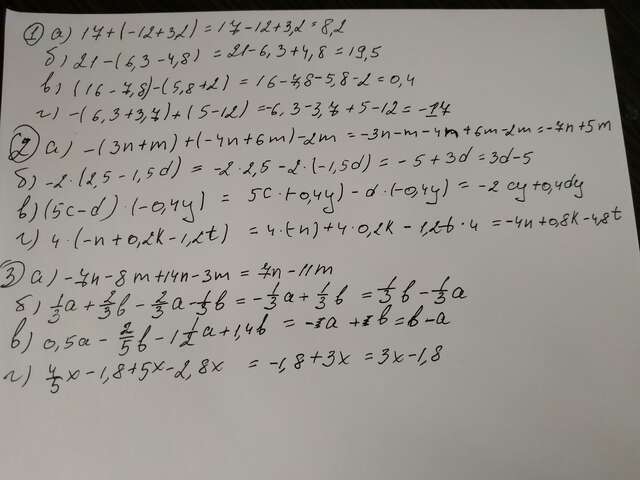 1 а) 17+(-12+3,2) = 17-12+3,2 = 8,2
б) 21-(6,3-4,8) = 21-6,3+4,8 = 19,5
в) (16-7,8)-(5,8+2) = 16-7,8-5,8-2 = 0,4
г) -(6,3+3,7)+(5-12) = -6,3-3,7+5-12 = -17
2 а) -(3n+m)+(-4n+6m)-2m = -3n-m-4n+6m-2m = -7n+5m
б) -2·(2,5-1,5d) = -2·2,5-2·(-1,5d) = -5+3d = 3d-5
в) (5c-d)·(-0,4y) = 5c·(-0,4y)-d·(-0,4y) = -2cy+0,4dy
г) 4·(-n+0,2k-1,2t) = 4·(-n)+4·0,2k-1,2t·4 = -4n+0,8k-4,8t
3 а) -7n-8m+14n-3m = 7n-11m
б) 1/3a+2/3b-2/3a-1/3b = -1/3a+1/3b = 1/3b-1/3a
в) 0,5a-2/5b-1 1/2a+1,4b = -1a+1b = b-a
г) 4/5x-1,8+5x-2,8x = -1,8+3x = 3x-1,8